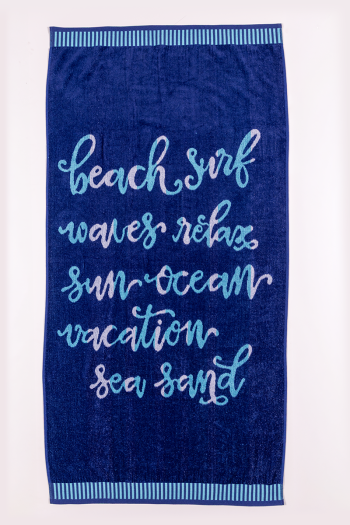 beach surf
waves relax
sun ocean
vacation
sea sand